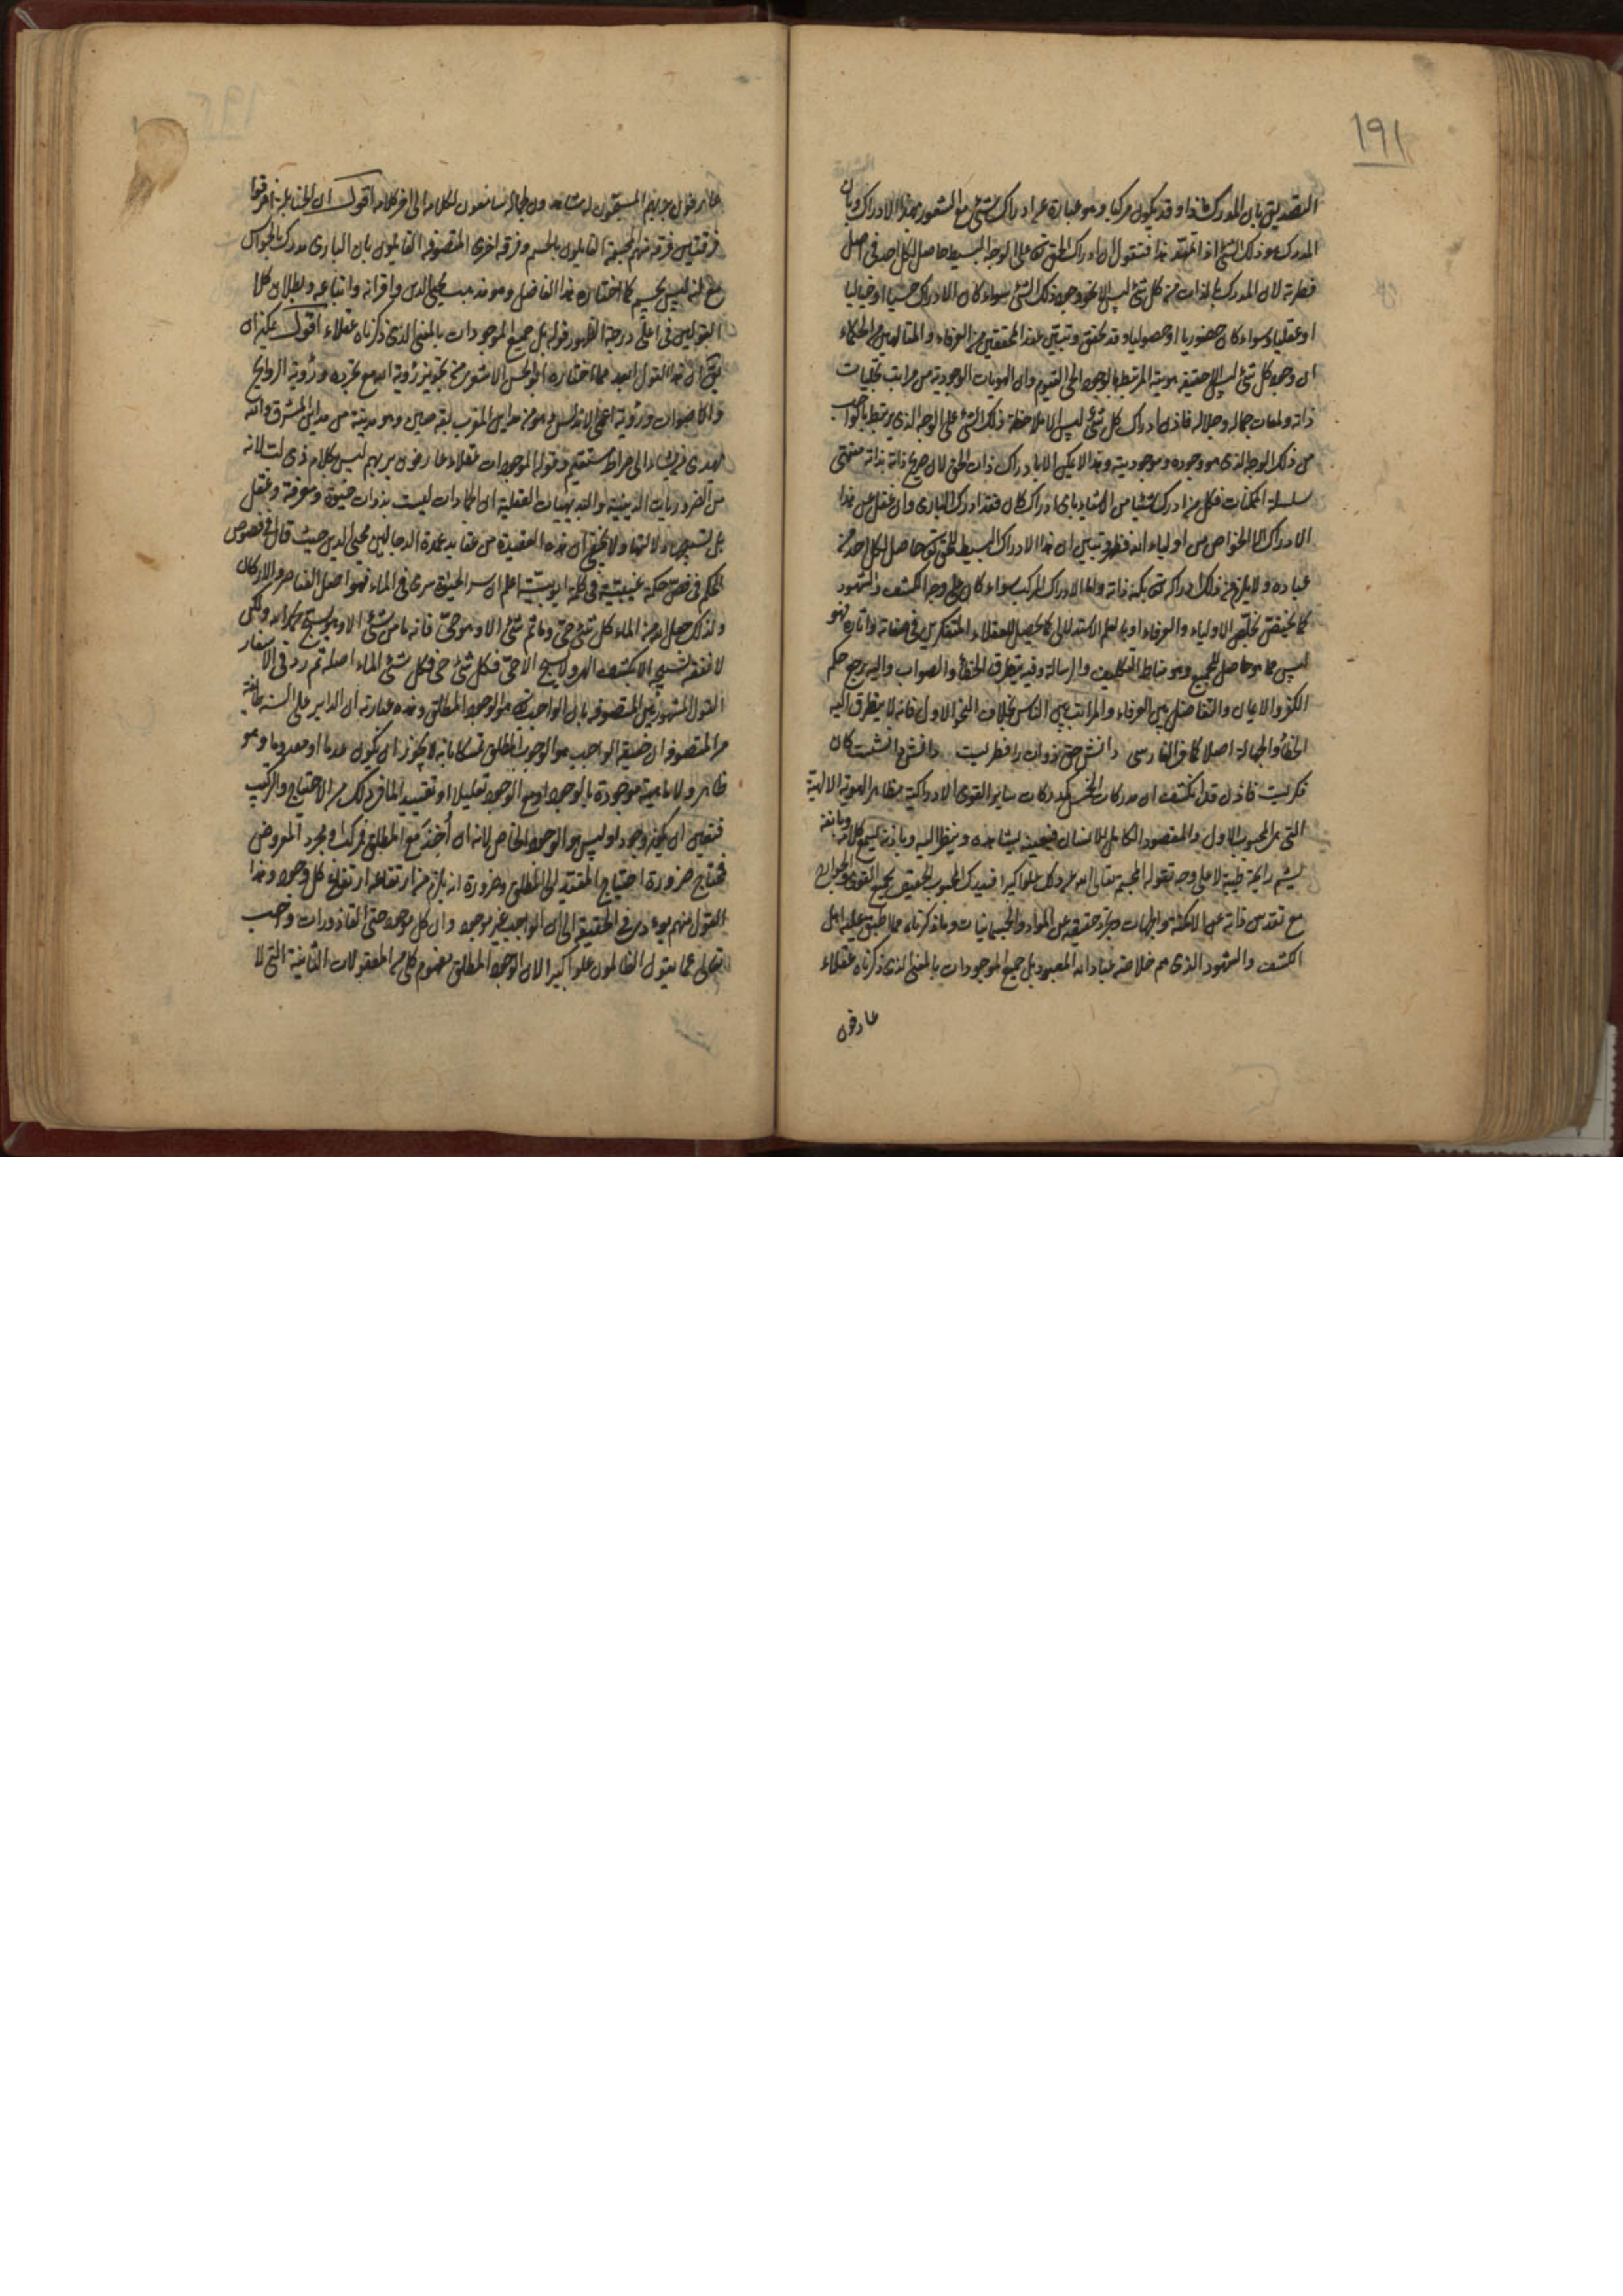 ١٩١
التصديق بان المدرك ماذا وقد يكون مركبا وهو عبارة عن ادراك شئ مع الشعور بهذا الادراك وبان
المدرك هو ذلك الشئ اذا تمهد هذا فنقول ان ادراك الحق تعالى على الوجه البسيط حاصل لكل احد في اصل
فطرته لان المدرك بالذات من كل شئ ليس الا نحو وجود ذلك الشئ سواء كان الادراك حسيا او خياليا
او عقليا وسواء كان حضوريا او حصوليا وقد تحقق وتبين عند المحققين من العرفاء والمتالهين من الحكماء
ان وجود كل شئ ليس الا حقيقة هويته المرتبطة بالوجود الحي القيوم وان الهويات الوجودية من مراتب تجليات
ذاته ولمعات جماله وجلاله فاذن ادراك كل شئ ليس الا ملاحظة ذلك الشئ على الوجه الذي يرتبط بالواجب
من ذلك الوجه الذي هو وجوده وموجوديته وهذا لا يمكن الا بادراك ذات الحق لان صريح ذاته بذاته منتهى
سلسلة الممكنات فكل من ادرك شيئا من الاشياء باى ادراك كان فقد ادرك البارى وان غفل عن هذا
الادراك الا الخواص من اولياء الله فظهر وتبين ان هذا الادراك البسيط للحق تعالى حاصل لكل احد من
عباده ولا يلزم من ذلك ادراكه تعالى بكنه ذاته واما الادراك المركب سواء كان على وجه الكشف والشهود
كما يختص بخلص الاولياء والعرفاء او بالعلم الاستدلالى كما يحصل للعقلاء المتفكرين في صفاته واثاره فهو
ليس مما هو حاصل للجميع وهو مناط التكليف والرسالة وفيه يتطرق الخطأ والصواب واليه يرجع حكم
الكفر والايمان والتفاضل بين العرفاء والمراتب بين الناس بخلاف النحو الاول فانه لا يتطرق اليه
الخطأ والجهالة اصلا كما في الفارسى دانش حق ذوات را فطريست دانش دانشست كان
فكريست فاذن قد انكشف ان مدركات الخمس كمدركات سائر القوى الادراكية مظاهر الهوية الالهية
التي هي المحبوب الاول والمقصود الكامل للانسان فبعينه يشاهده وينظر اليه وباذنه يسمع كلامه وبانفه
يشم رايحة طيبة لا على وجه تقوله المجسمة تعالى الله عن ذلك علوا كبيرا فيدرك المحبوب الحقيقى بجميع القوى والجوارح
مع تقدس ذاته عن الامكنة والجهات وتجرد حقيقته عن المواد والجسمانيات وما ذكرناه مما اطبق عليه اهل
الكشف والشهود الذى هم خلاصة عباد الله المعبود بل جميع الموجودات بالمعنى الذى ذكرناه عقلاء
عارفون
عارفون بربهم المسبحون له شاهدون لجماله سامعون لكلامه الى اخر كلامه اقول ان الحنابلة افترقوا
فرقتين فرقة منهم المجسمة القايلون بالجسم وفرقة اخرى المتصوفة القايلون بان البارى مدرك بالحواس
مع انه ليس بجسم كما اختاره هذا الفاضل وهو مذهب محيى الدين واقرانه واتباعه وبطلان كلا
القولين في اعلى درجة الظهور قوله بل جميع الموجودات بالمعنى الذى ذكرناه عقلاء اقول يمكن ان
يقال ان هذا القول ابعد مما اختاره ابو الحسن الاشعرى من تجويز رؤية الله مع تجرده ورؤية الروايح
والاصوات ورؤية اعمى الاندلس وهو من مداين المغرب بقة صين وهو مدينة من مداين المشرق والله
يهدى من يشاء الى صراط مستقيم وقوله الموجودات عقلاء عارفون بربهم ليس كلام ذى لب لانه
من الضروريات الدينية والبديهيات العقلية ان الجمادات ليست بذوات حيوة ومعرفة وعقل
ولا يخفى ان هذه العقيدة من عقايد عمدة الدجالين محيى الدين حيث قال في فصوص
الحكم فى فص حكمة غيبية فى كلمة ايوبية اعلم ان سر الحيوة سرى فى الماء فهو اصل العناصر والاركان
ولذلك جعل الله من الماء كل شئ حى وما ثم شئ الا وهو حى فانه ما من شئ الا وهو يسبح بحمد الله ولكن
لا نفقه تسبيحه الا بكشف الهى ولا يسبح الا حى فكل شئ حى فكل شئ الماء اصله ثم رد فى الاسفار
القول المشهور من المتصوفة بان الواجب تعالى هو الوجود المطلق وهذه عبارته ان الداير على السنة طائفة
من المتصوفة ان حقيقة الواجب هو الوجود المطلق تمسكا بانه لا يجوز ان يكون عدما او معدوما وهو
ظاهر ولا ماهية موجودة بالوجود او مع الوجود تعليلا او تقييدا لما فى ذلك من الاحتياج والتركيب
فتعين ان يكون وجودا وليس هو الوجود الخاص لانه ان أخذ مع المطلق فمركب او مجرد المعروض
فمحتاج ضرورة احتياج المقيد الى المطلق وضرورة انه يلزم من ارتفاعه ارتفاع كل وجود وهذا
القول منهم يؤدى فى الحقيقة الى ان الواجب غير موجود وان كل موجود حتى القاذورات واجب
تعالى عما يقول الظالمون علوا كبيرا لان الوجود المطلق مفهوم كلى من المعقولات الثانية التى لا